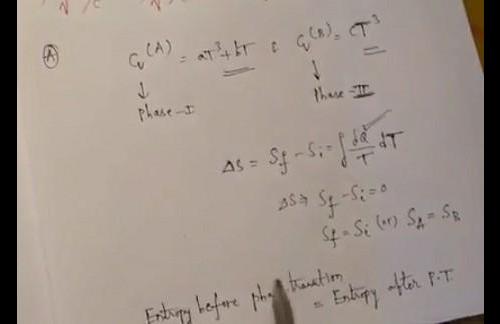 Ⓐ C_v^(A) = aT³+bT & C_v^(B) = CT³
↓ ↓
Phase-I Phase-II
ΔS = S_f - S_i = ∫ dQ/T dT
ΔS ⇒ S_f - S_i = 0
S_f = S_i (or) S_A = S_B
Entropy before
= Entropy after P.T.